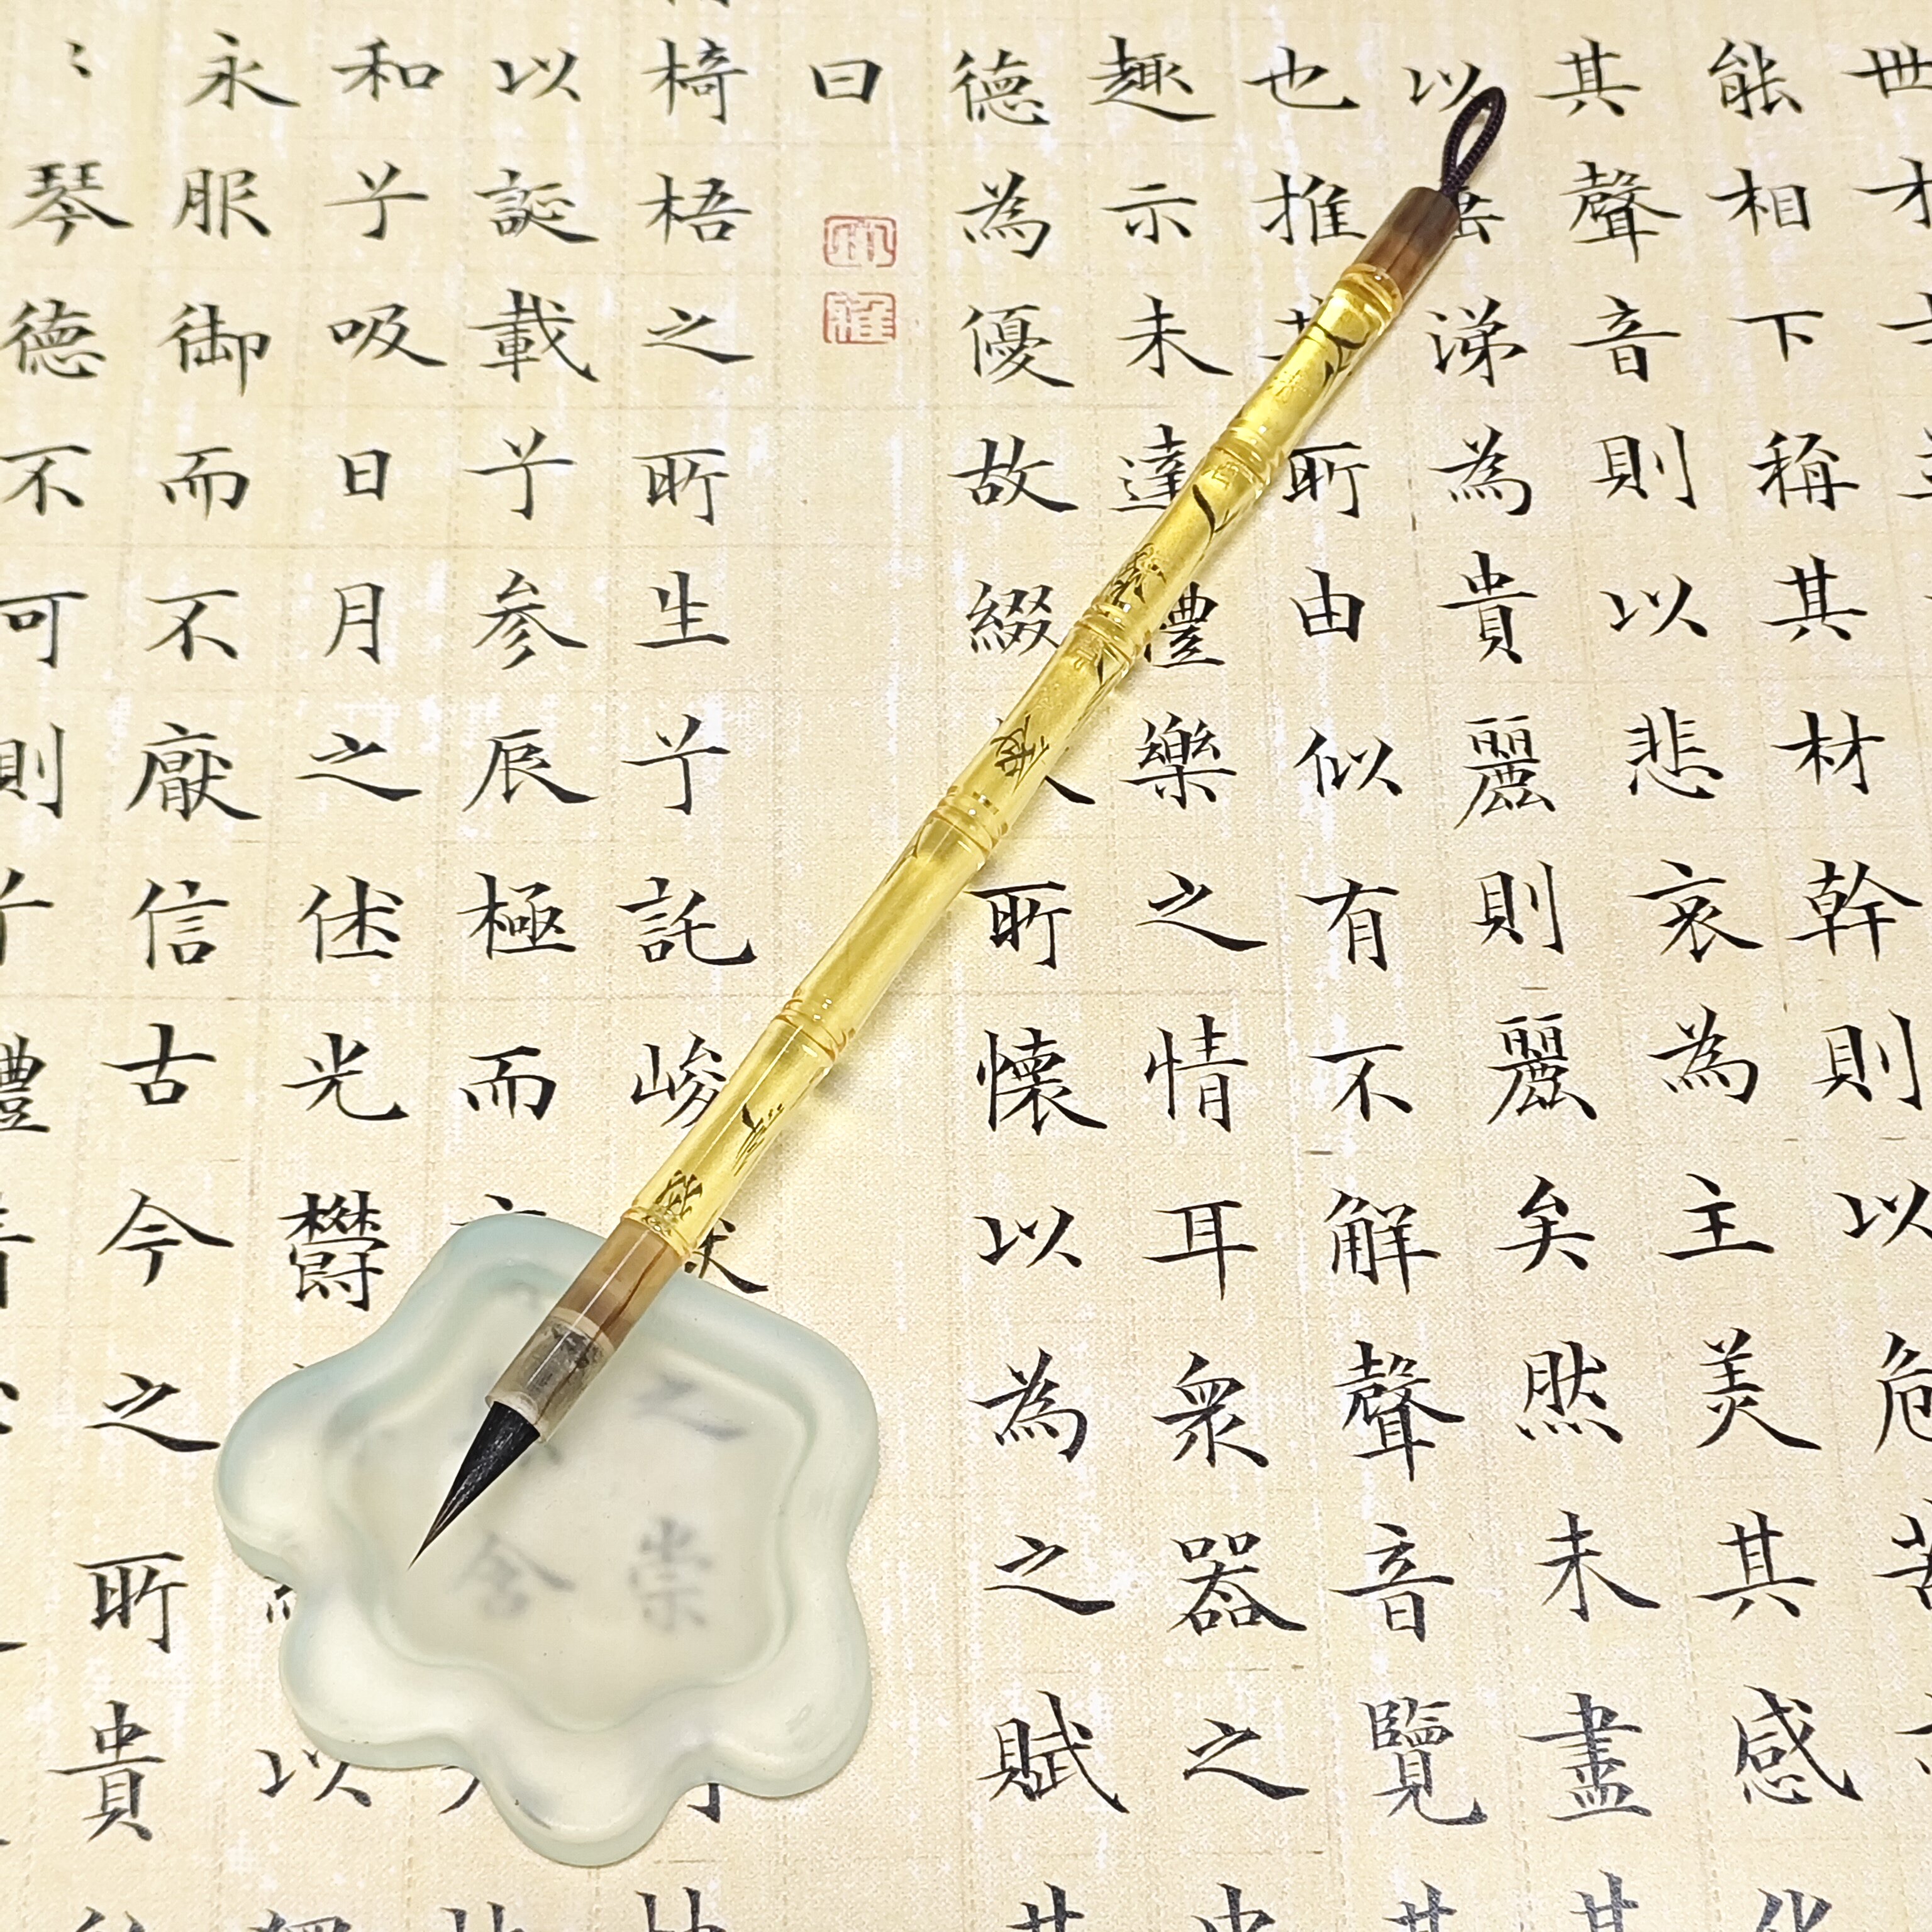 世才
能相下稱其材幹則以危苦
其聲音則以悲哀為主美其感化
以涕為貴麗則麗矣然未盡其
也推其所由似有不解聲音覽其
趣示未達禮樂之情耳衆器之中
德為優故綴所懷以為之賦其
曰
椅梧之所生兮託峻嶽之崇
以誕載兮参辰極而含
和兮吸日月之休光鬱以
永服御而不厭信古今之所貴
琴德不可則兮禮